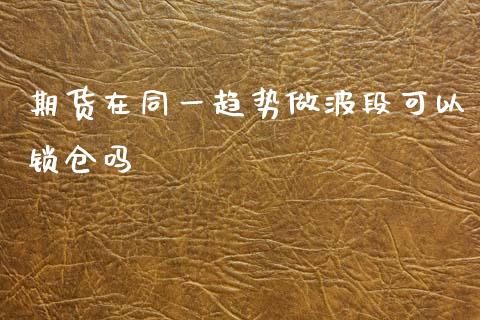 期货在同一趋势做波段可以
锁仓吗